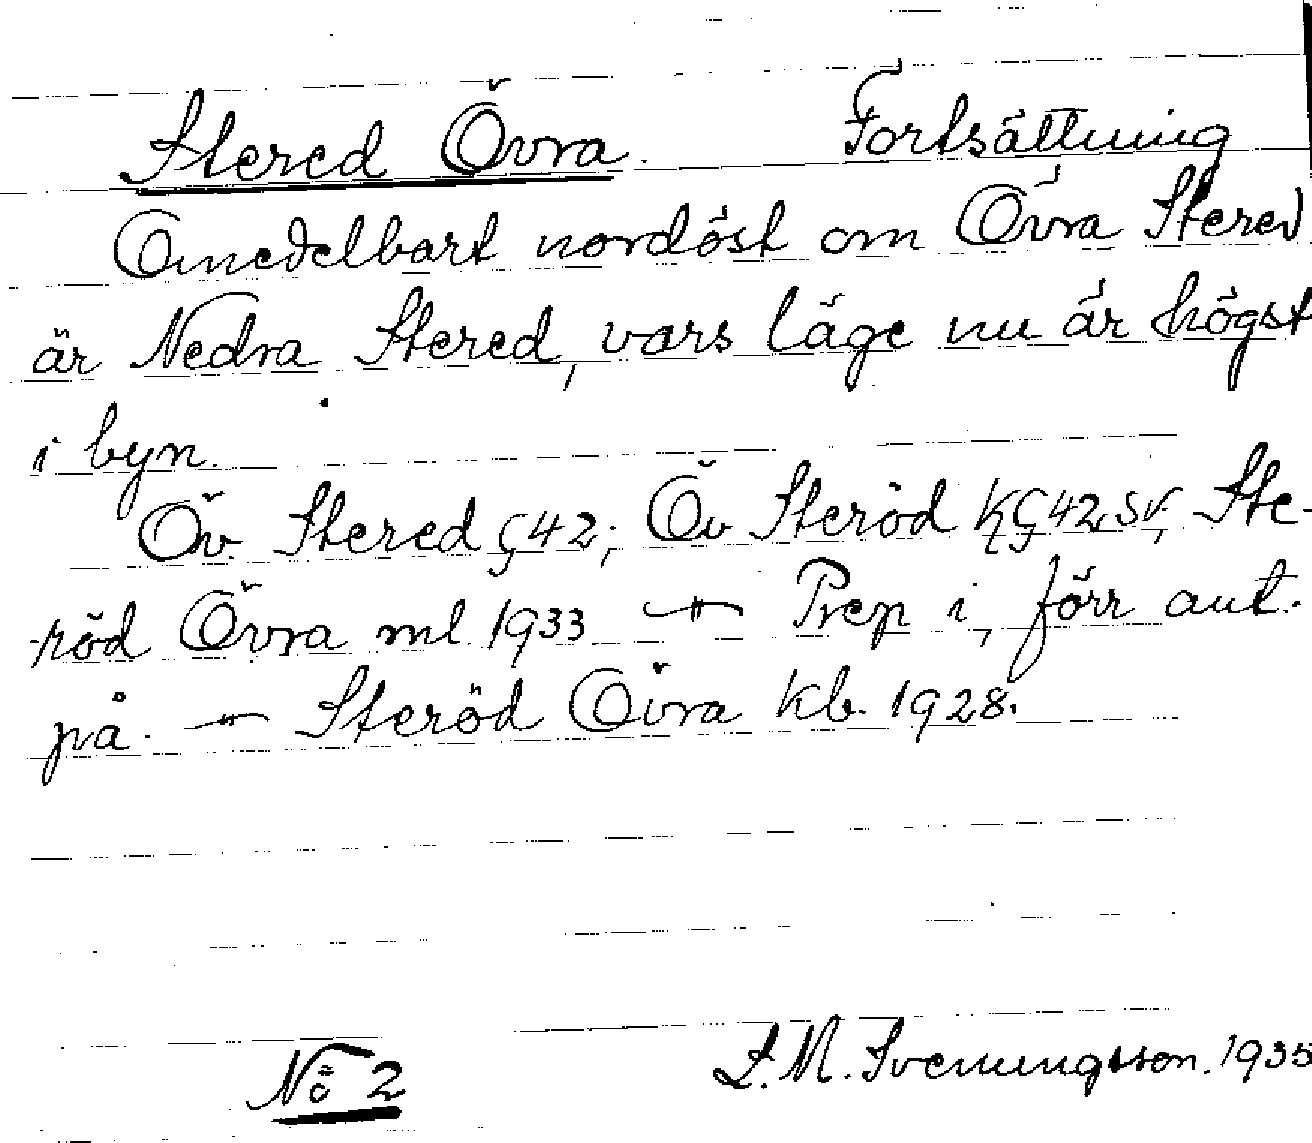 Stered Övra. Fortsättning
Omedelbart nordöst om Övra Stered
är Nedra Stered, vars läge nu är högst
i byn.
Öv. Stered G42; Öv Steröd KG42SV; Ste-
röd Övra ml 1933 — " — Prep i, förr aut.
på. — " — Steröd Övra kb. 1928.
No 2 L.M. Svenungsson. 1935